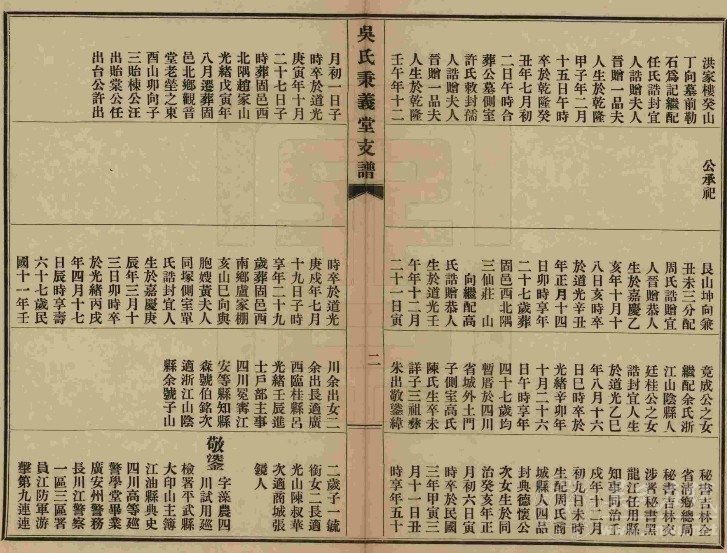 吳氏秉義堂支譜
二
洪家樓癸山
丁向墓前勒
石爲記繼配
任氏誥封宜
人誥贈夫人
晉贈一品夫
人生於乾隆
甲子年二月
十五日午時
卒於乾隆癸
丑年七月初
二日午時合
葬公墓側室
許氏敕封孺
人誥贈夫人
晉贈一品夫
人生於乾隆
壬午年十二
月初一日子
時卒於道光
庚寅年十月
二十七日子
時葬固邑西
北隅趙家山
光緒戊寅年
八月遷葬固
邑北鄉觀音
堂老塋之東
酉山卯向子
三貽棟公汪
出貽棠公任
出台公許出
公承祀
艮山坤向兼
丑未三分配
周氏誥贈宜
人晉贈恭人
生於嘉慶乙
亥年十月十
八日亥時卒
於道光辛丑
年正月十四
日卯時享年
二十七歲葬
固邑西北隅
三仙莊 山
向繼配高
氏誥贈恭人
生於道光壬
午年十二月
二十一日寅
時卒於道光
庚戌年七月
十九日子時
享年二十九
歲葬固邑西
南鄉盧家棚
亥山巳向與
胞嫂黃夫人
同塚側室單
氏誥封宜人
生於嘉慶庚
辰年三月十
三日卯時卒
於光緒丙戌
年四月十七
日辰時享壽
六十七歲民
國十一年壬
竟成公之女
繼配余氏浙
江山陰縣人
廷桂公之女
誥封宜人生
於道光乙巳
年八月十六
日巳時卒於
光緒辛卯年
十月二十六
日午時享年
四十七歲均
暫厝於四川
省城外土門
子側室高氏
陳氏生卒未
詳子三祖彝
朱出敬鋆緯
川余出女二
余出長適廣
西臨桂縣呂
光緒壬辰進
士戶部主事
四川冕甯江
安等縣知縣
森號伯銘次
適浙江山陰
縣余號子山
秘書吉林全
省清鄉總局
秘書吉林交
涉署秘書黑
龍江任用縣
知事同治甲
戌年十二月
初九日未時
生配周氏商
城縣人四品
封典德懷公
次女生於同
治癸亥年正
月初六日寅
時卒於民國
三年甲寅三
月十一日丑
時享年五十
二歲子一毓
銜女二長適
光山陳叔華
次適商城張
鏡人
敬鋆 字藻農四
川試用巡
檢署平武縣
大印山主簿
江油縣典史
四川高等巡
警學堂畢業
廣安州警務
長川江警察
一區三區署
員江防軍游
擊第九連連